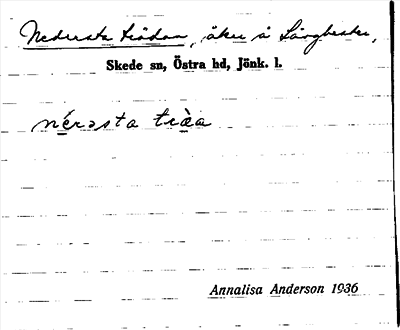 Nedersta trädan, åker å Långbeskr,
Skede sn, Östra hd, Jönk. l.
nérəsta trà̤a
Annalisa Anderson 1936